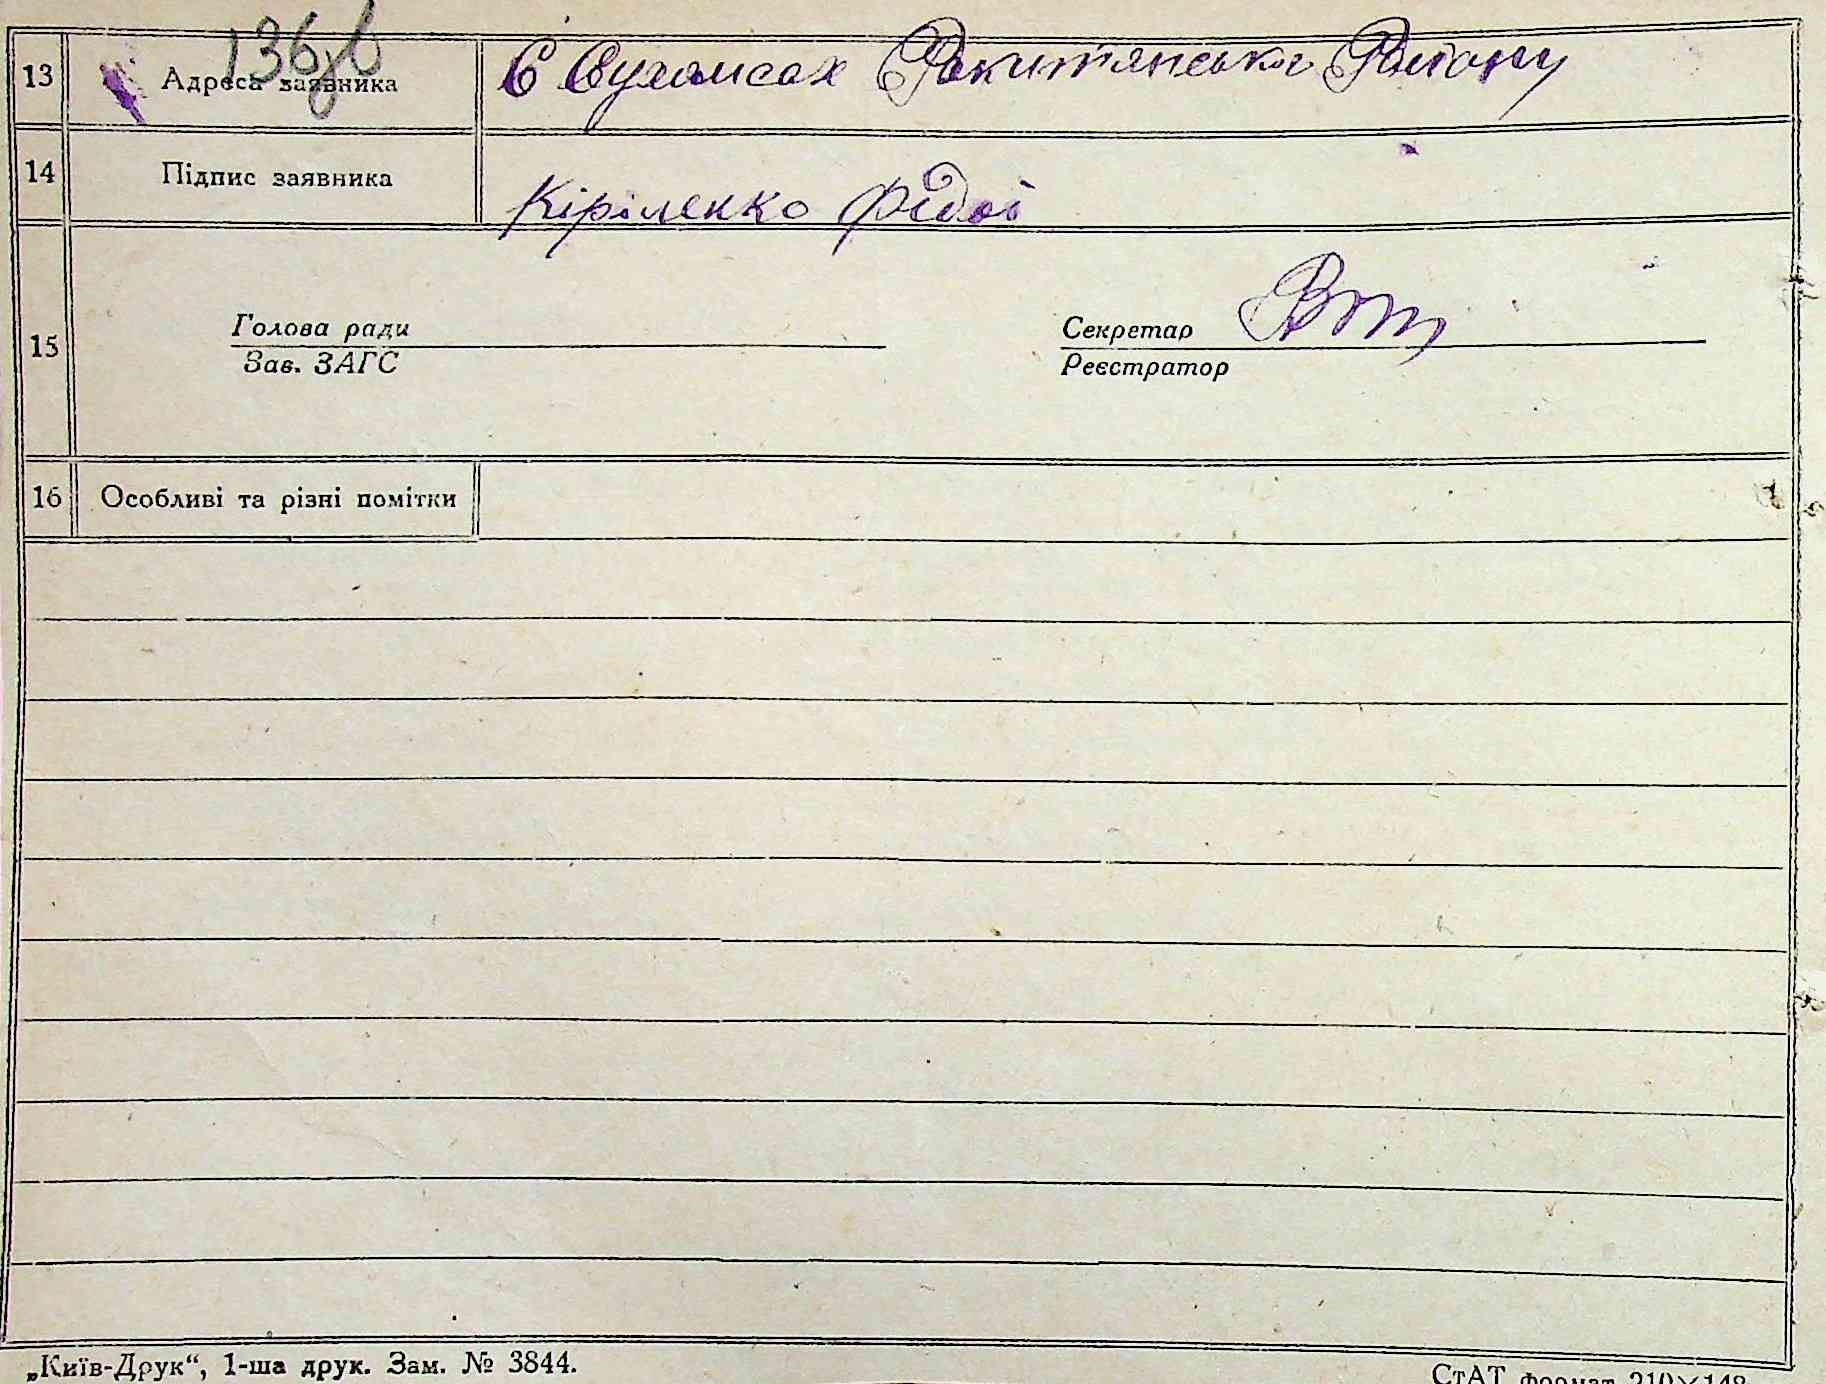 136 в
13 Адреса заявника С Сухолісах Рокитянськог Району
14 Підпис заявника Кіріленко
15 Голова ради Секретар
Зав. ЗАГС Реєстратор
16 Особливі та різні помітки
„Київ-Друк“, 1-ша друк. Зам. № 3844.
СтАТ формат 210×148